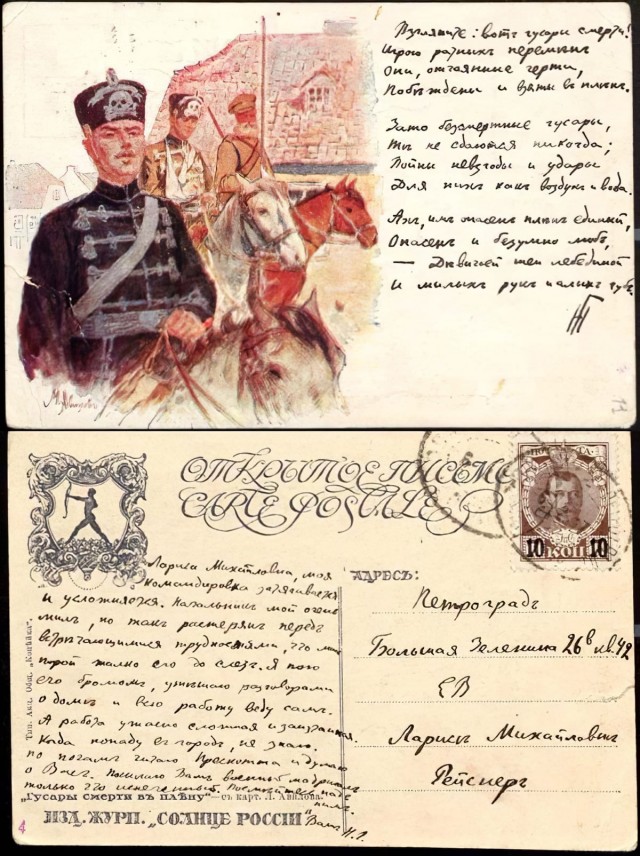 Взгляните: вотъ гусары смерти!
Игрою ратныхъ перемѣнъ
Они, отчаянные черти,
Побѣждены и взяты въ плѣнъ.
Зато безсмертные гусары,
Тѣ не сдаются никогда;
Войны невзгоды и удары
Для нихъ какъ воздухъ и вода.
Ахъ, имъ опасенъ плѣнъ единый,
Опасенъ и безумно любъ,
— Дѣвичьей шеи лебединой
И милыхъ рукъ и алыхъ губъ.
НГ
М. Авиловъ
ОТКРЫТОЕ ПИСЬМО
CARTE POSTALE
ПОЧТ. МАРКА.
10 КОП 10
Лариса Михайловна, моя
командировка затягивается
и усложняется. Начальникъ мой очень
милъ, но такъ растерянъ передъ
встрѣчающимися трудностями, что мнѣ
порой жалко его до слезъ. Я пою
его бромомъ, утѣшаю разговорами
о домѣ и всю работу веду самъ.
А работа ужасно сложная и запутанная.
Когда попаду въ городъ, не знаю.
По ночамъ читаю Прескотта и думаю
о Васъ. Посылаю Вамъ военный мадригалъ
только что испеченный. Посмѣйтесь надъ
нимъ.
Вашъ Н. Г.
АДРЕСЪ:
Петроградъ
Большая Зеленина 26в кв. 42
ЕВ
Ларисѣ Михайловнѣ
Рейснеръ
Тип. Акц. Общ. „Копѣйка".
„Гусары смерти въ плѣну"—съ карт. Л. Авилова.
ИЗД. ЖУРН. „СОЛНЦЕ РОССІИ"
4